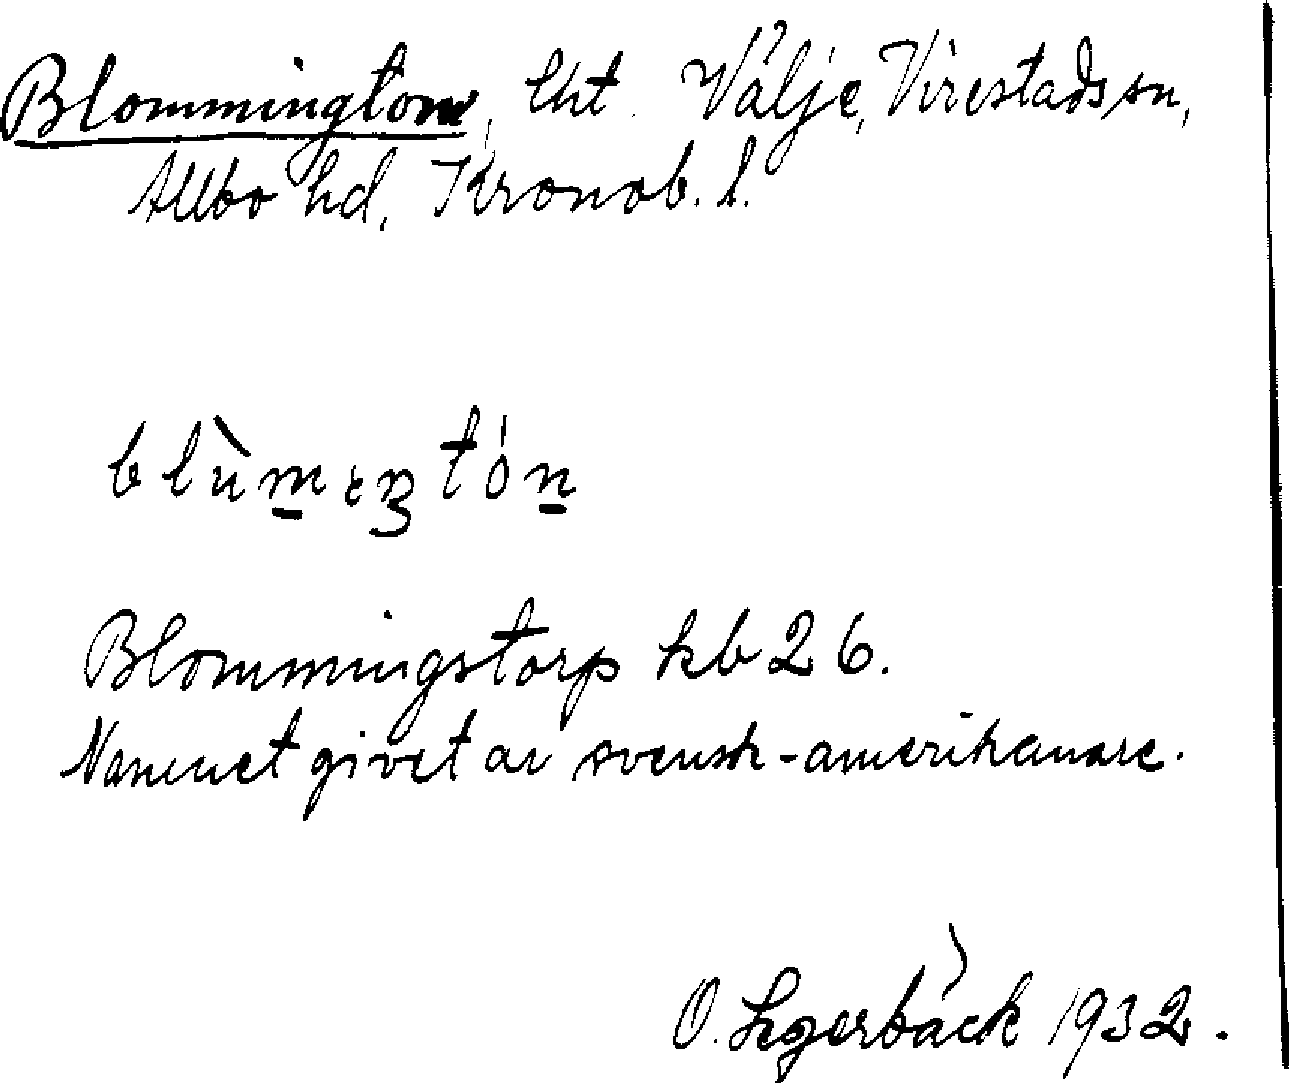 Blommington, lht. Välje, Virestads sn,
Allbo hd, Kronob. l.
Blommingstorp kb 26.
Namnet givet av svensk-amerikanare.
O. Lgerbäck 1932.